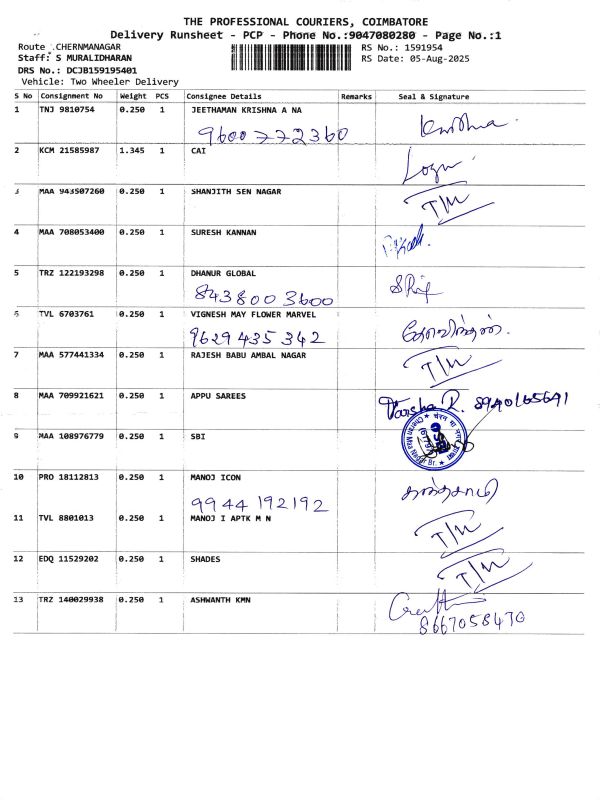 THE PROFESSIONAL COURIERS, COIMBATORE
Delivery Runsheet - PCP - Phone No.:9047080280 - Page No.:1
Route :CHERNMANAGAR RS No.: 1591954
Staff: S MURALIDHARAN RS Date: 05-Aug-2025
DRS No.: DCJB159195401
Vehicle: Two Wheeler Delivery
S No Consignment No Weight PCS Consignee Details Remarks Seal & Signature
1 TNJ 9810754 0.250 1 JEETHAMAN KRISHNA A NA
9600772360
2 KCM 21585987 1.345 1 CAI
3 MAA 943507260 0.250 1 SHANJITH SEN NAGAR T/M
4 MAA 708053400 0.250 1 SURESH KANNAN
5 TRZ 122193298 0.250 1 DHANUR GLOBAL
8438003600
6 TVL 6703761 0.250 1 VIGNESH MAY FLOWER MARVEL
9629435342
7 MAA 577441334 0.250 1 RAJESH BABU AMBAL NAGAR T/M
8 MAA 709921621 0.250 1 APPU SAREES Varsha R. 8940165641
9 MAA 108976779 0.250 1 SBI
10 PRO 18112813 0.250 1 MANOJ ICON
9944 192192
11 TVL 8801013 0.250 1 MANOJ I APTK M N T/M
12 EDQ 11529202 0.250 1 SHADES T/M
13 TRZ 140029938 0.250 1 ASHWANTH KMN
8667058470